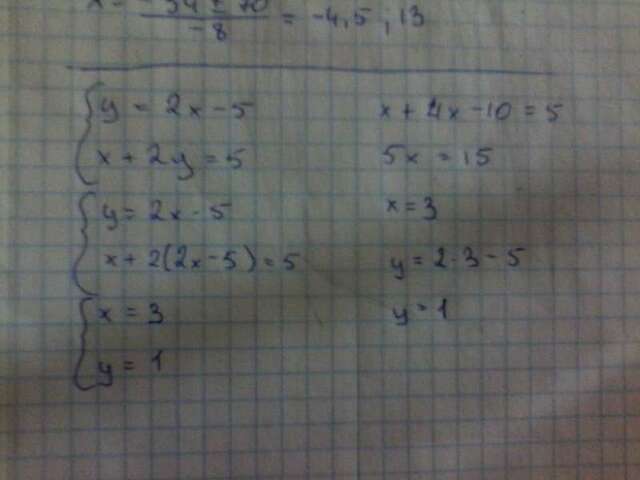 x = -34 ± 70 / -8 = -4,5 ; 13
y = 2x - 5
x + 2y = 5
y = 2x - 5
x + 2(2x - 5) = 5
x = 3
y = 1
x + 4x - 10 = 5
5x = 15
x = 3
y = 2 · 3 - 5
y = 1